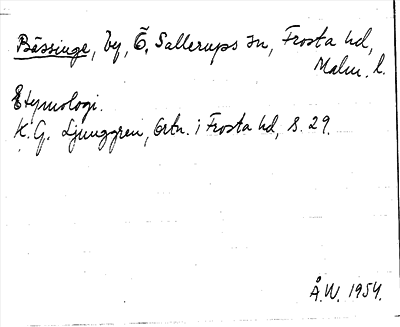 Bässinge, by, Ö. Sallerups sn, Frosta hd,
Malm. l.
Etymologi.
K. G. Ljunggren, Ortn. i Frosta hd, s. 29.
Å.W. 1954.